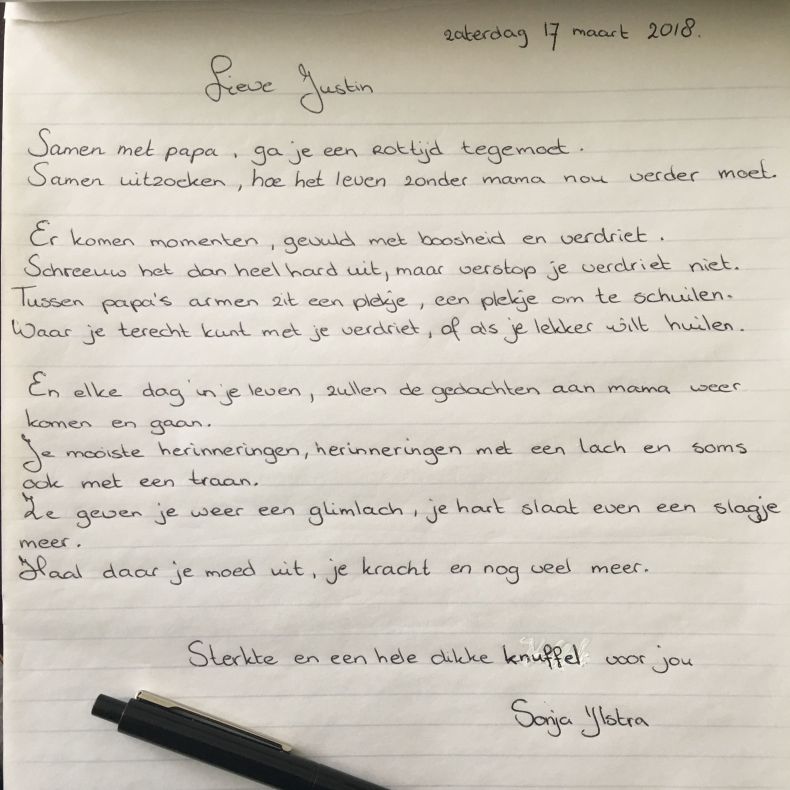 zaterdag 17 maart 2018.
Lieve Justin
Samen met papa, ga je een rottijd tegemoet.
Samen uitzoeken, hoe het leven zonder mama nou verder moet.
Er komen momenten, gevuld met boosheid en verdriet.
Schreeuw het dan heel hard uit, maar verstop je verdriet niet.
Tussen papa's armen zit een plekje, een plekje om te schuilen.
Waar je terecht kunt met je verdriet, of als je lekker wilt huilen.
En elke dag in je leven, zullen de gedachten aan mama weer
komen en gaan.
Je mooiste herinneringen, herinneringen met een lach en soms
ook met een traan.
Ze geven je weer een glimlach, je hart slaat even een slagje
meer.
Haal daar je moed uit, je kracht en nog veel meer.
Sterkte en een hele dikke knuffel voor jou
Sonja Ylstra